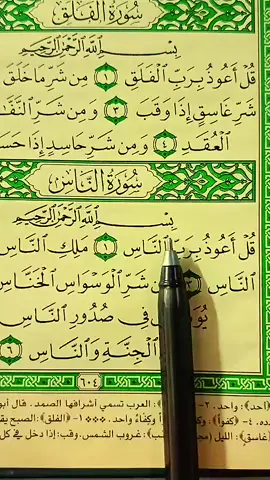 سُورَةُ الْفَلَقِ
بِسْمِ اللَّهِ الرَّحْمَٰنِ الرَّحِيمِ
قُلْ أَعُوذُ بِرَبِّ الْفَلَقِ ١ مِن شَرِّ مَا خَلَقَ
شَرِّ غَاسِقٍ إِذَا وَقَبَ ٣ وَمِن شَرِّ
الْعُقَدِ ٤ وَمِن شَرِّ حَاسِدٍ إِذَا
سُورَةُ النَّاسِ
بِسْمِ اللَّهِ الرَّحْمَٰنِ الرَّحِيمِ
قُلْ أَعُوذُ بِرَبِّ النَّاسِ ١ مَلِكِ النَّاسِ
النَّاسِ ٣ شَرِّ الْوَسْوَاسِ الْخَنَّاسِ
فِي صُدُورِ النَّاسِ
الْجِنَّةِ وَالنَّاسِ ٦
٦٠٤
﴿أحد﴾: واحد. ٢- : العرب تسمي أشرافها الصمد. قال أبو
٤- ﴿كفواً﴾: وكفاءً واحد. ١- ﴿الفلق﴾: الصبح
﴿غاسق﴾: الليل : غروب الشمس. وقب: إذا دخل في كل